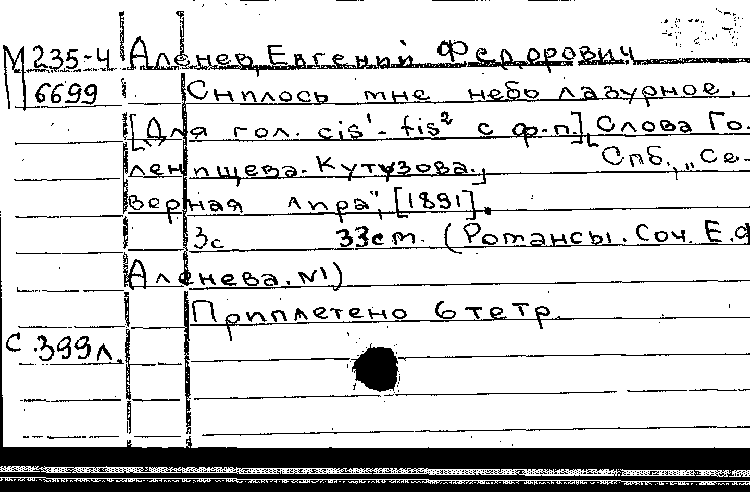 М 235-4 Аленев, Евгений Федорович
6699 Снилось мне небо лазурное.
[Для гол. cis¹-fis² с ф-п.], Слова Го-
ленищева-Кутузова., Спб., „Се-
верная лира", [1891].
3с 33 cm. (Романсы. Соч. Е.Ф
Аленева. №1)
Приплетено 6 тетр.
С 399л.